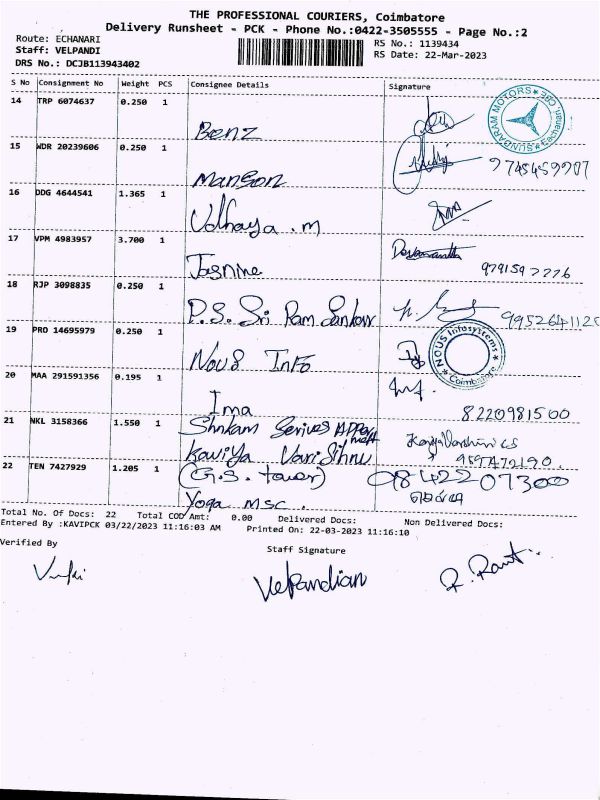 THE PROFESSIONAL COURIERS, Coimbatore
Delivery Runsheet - PCK - Phone No.:0422-3505555 - Page No.:2
Route: ECHANARI
RS No.: 1139434
Staff: VELPANDI
RS Date: 22-Mar-2023
DRS No.: DCJB113943402
S No Consignment No Weight PCS Consignee Details Signature
14 TRP 6074637 0.250 1
Benz
SUNDARAM MOTORS
15 WDR 20239606 0.250 1
Manson
9745459907
16 DDG 4644541 1.365 1
17 VPM 4983957 3.700 1
Jasnine
9791597776
18 RJP 3098835 0.250 1
P.S. Sri Ram Sankar
19 PRO 14695979 0.250 1
Nous Info
NOUS Infosystems * Coimbatore *
20 MAA 291591356 0.195 1
Ima
8220981500
21 NKL 3158366 1.550 1
Kaviya Varishnu
22 TEN 7427929 1.205 1
(G.S. tower)
9842207300
Yoga msc.
Total No. Of Docs: 22 Total COD Amt: 0.00 Delivered Docs: Non Delivered Docs:
Entered By :KAVIPCK 03/22/2023 11:16:03 AM Printed On: 22-03-2023 11:16:10
Verified By
Staff Signature
Velpandian